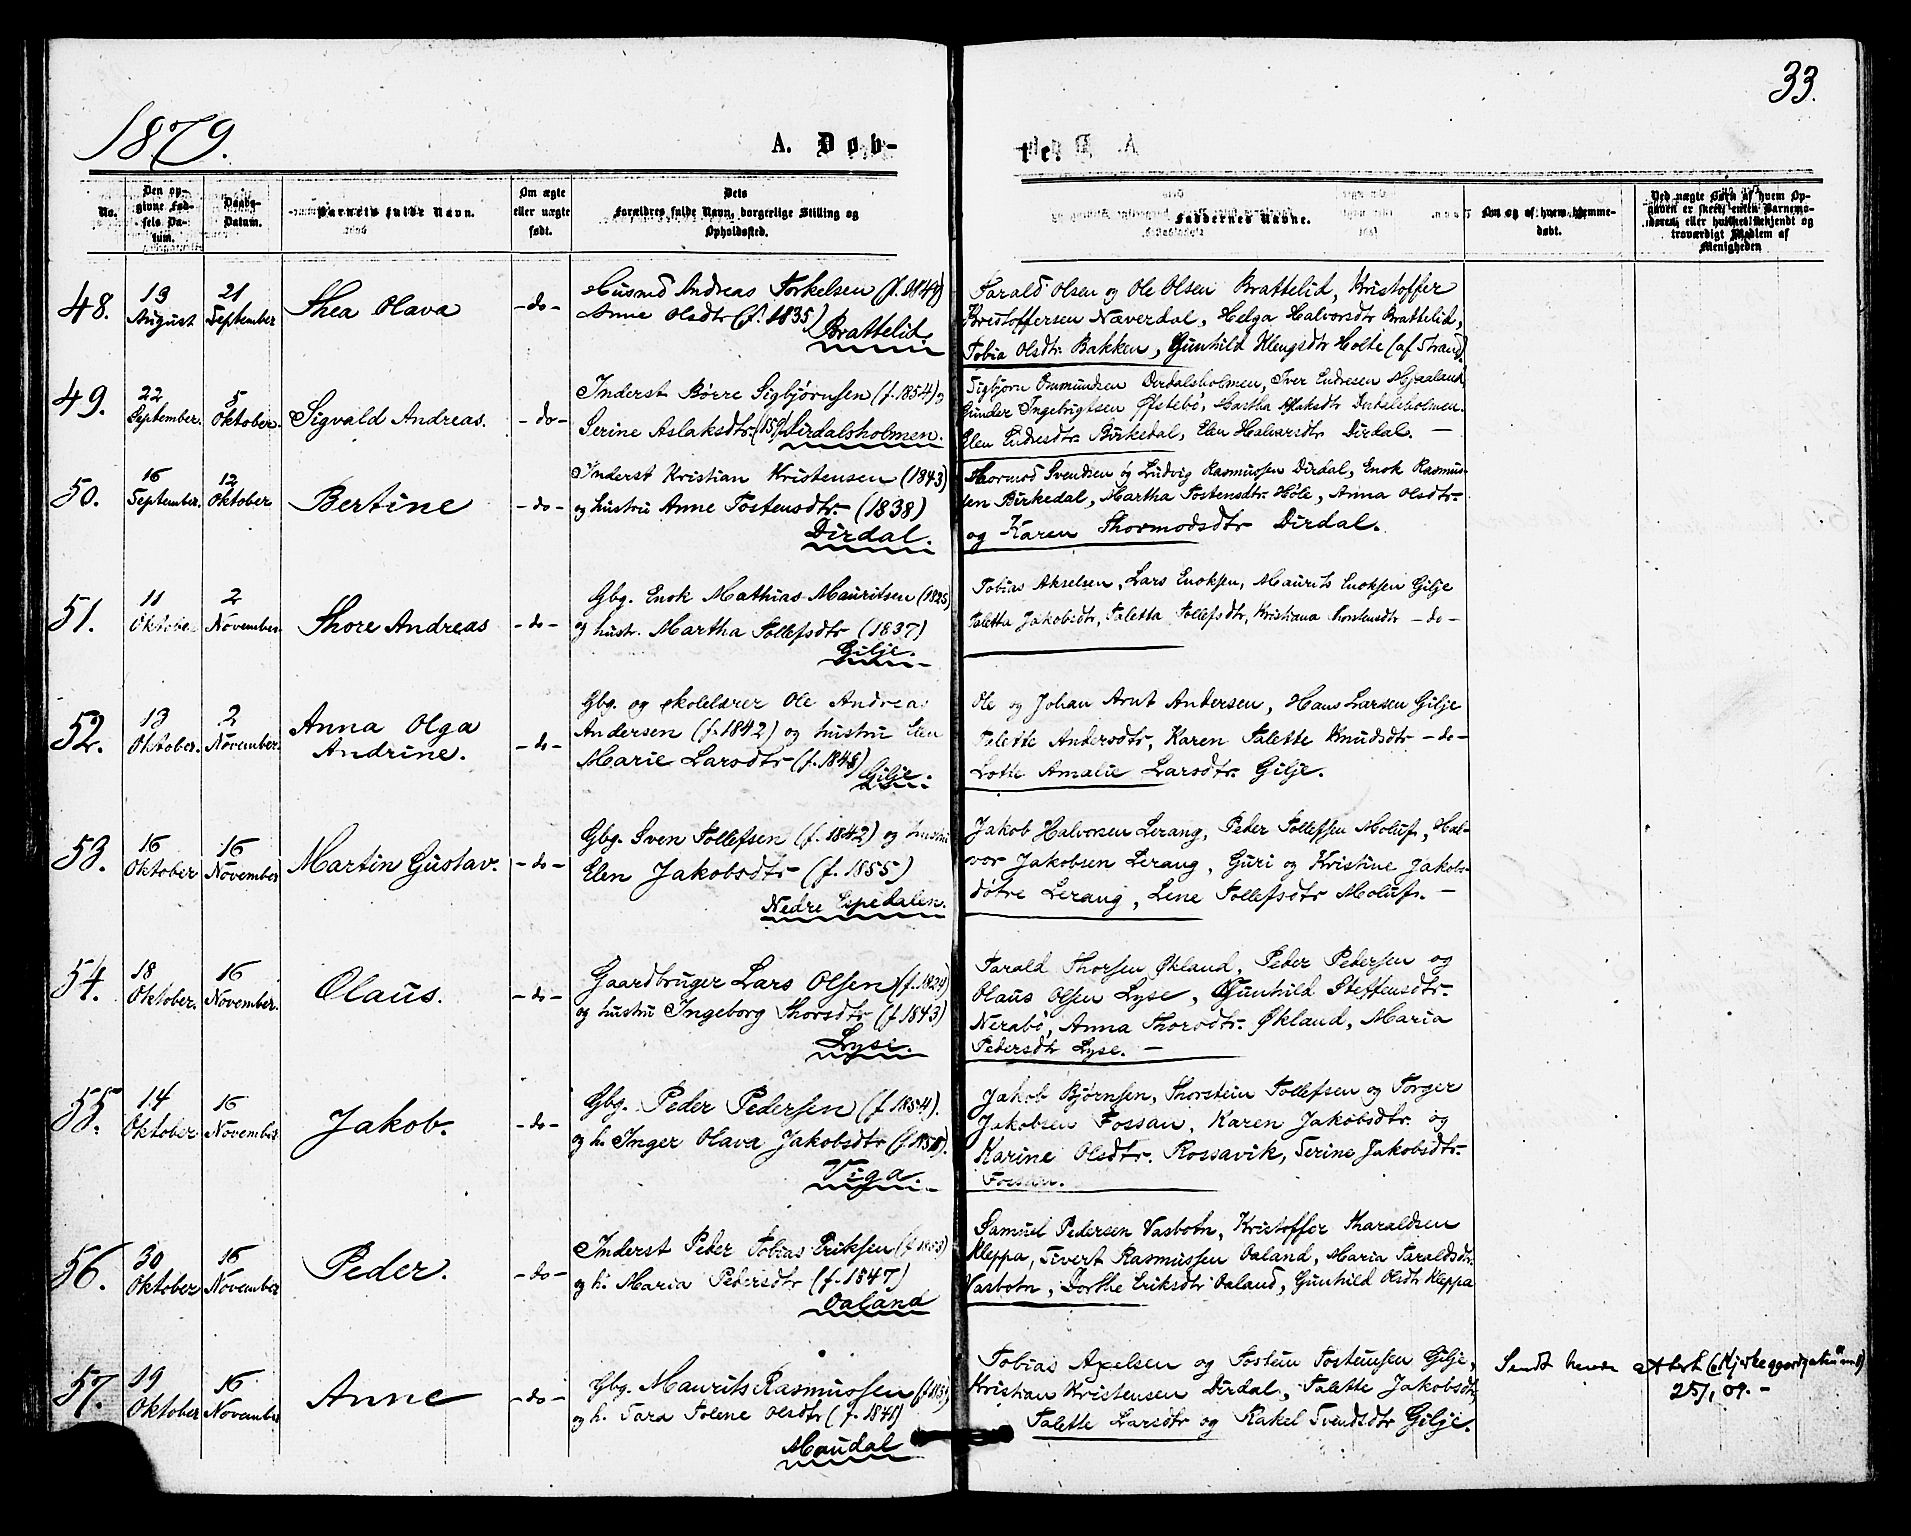 33.
1879.
A. Døb-
te.
No.
Den op-
givne Fød-
sels Da-
tum.
Daabs-
Datum.
Barnets fulde Navn.
Om ægte
eller uægte
født.
Dets
Forældres fulde Navn, borgerlige Stilling og
Opholdssted.
Faddernes Navne.
Om og af hvem hjemme-
døbt.
Ved uægte Børn af hvem Op-
gaven er skeet, enten Barnemo-
deren, eller hvilket bekjendt og
troværdigt Medlem af
Menigheden
48.
13
August
21
September
Thea Olava
- do -
Husmd Andreas Torkelsen
Anne Olsdtr (f. 1835)
Brattelid.
Tarald Olsen og Ole Olsen Brattelid, Kristoffer
Kristoffersen Næverdal, Helga Halvorsdtr Brattelid,
Tobia Olsdtr Bakken, Gunhild Klengsdtr Holte (af Strand).
49.
22
September.
5
Oktober.
Sigvald Andreas.
- do -
Inderst Børre Sigbjørnsen (f. 1854) og
Serine Aslaksdtr Dirdalsholmen.
Sigbjørn Ommundsen Dirdalsholmen, Iver Endresen Mjaaland
Gunder Ingebrigtsen Øfstebø, Martha Aslaksdtr Dirdalsholmen.
Elen Endresdtr. Birkedal, Elen Halvorsdtr Dirdal. -
50.
16
September.
12
Oktober
Bertine
- do -
Inderst Kristian Kristensen (1843)
og hustru Anne Tostensdtr. (1838)
Dirdal.
Thormod Svendsen og Ludvig Rasmussen Dirdal, Enok Rasmus-
sen Birkedal, Martha Tostensdtr. Høle, Anna Olsdtr.
og Karen Thormodsdtr Dirdal.
51.
11
Oktober
2
November.
Thore Andreas
- do -
Gbg. Enok Mathias Mauritsen (1825)
og hustr. Martha Tollefsdtr (1837)
Gilje.
Tobias Akselsen, Lars Enoksen, Maurits Enoksen Gilje
Taletta Jakobsdtr, Taletta Tollefsdtr, Kristiana - do -
52.
13
Oktober.
2
November.
Anna Olga
Andrine.
- do -
Gbg. og skolelærer Ole Andreas
Andersen (f. 1842) og hustru Elen
Marie Larsdtr (f. 1848)
Gilje.
Ole og Johan Arnt Andersen, Hans Larsen Gilje
Talette Andersdtr, Karen Talette Knudsdtr - do -
Lotte Amalie Larsdtr. Gilje.
53.
16
Oktober
16
November
Martin Gustav.
- do -
Gbg. Sven Tollefsen (f. 1842) og hustru
Elen Jakobsdtr (f. 1855)
Nedre Espedalen.
Jakob Halvorsen Lerang, Peder Tollefsen Moluf, Hal-
vor Jakobsen Lerang, Guri og Kristine Jakobs-
døtre Lerang, Lene Tollefsdtr Moluf. -
54.
18
Oktober.
16
November.
Olaus.
- do -
Gaardbruger Lars Olsen (f. 1829)
og hustru Ingeborg Thorsdtr (f. 1843)
Lyse.
Tarald Thorsen Økland, Peder Pedersen og
Olaus Olsen Lyse, Gunhild Steffensdtr.
Nerabø, Anna Thorsdtr. Økland, Maria
Pedersdtr Lyse. -
55.
14
Oktober
16
November
Jakob.
- do -
Gbg. Peder Pedersen (f. 1854).
og h. Inger Olava Jakobsdtr
Viga.
Jakob Bjørnsen, Thorstein Tollefsen og Torger
Jakobsen Fossan, Karen Jakobsdtr. og
Karine Olsdtr. Rossavik, Serine Jakobsdtr.
Fossan.
56.
30
Oktober
16
November
Peder.
- do -
Inderst Peder Tobias Eriksen
og h. Maria Pedersdtr (f. 1847)
Oaland
Samuel Pedersen Vasbotn, Kristoffer Tharaldsen
Kleppa, Sivert Rasmussen Oaland, Maria Taraldsdtr.
Vasbotn, Dorthe Eriksdtr Oaland, Gunhild Olsdtr Kleppa
57.
19
Oktober
16
November
Anne
- do -
Gbg. Maurits Rasmussen
og h. Sara Tolene Olsdtr (f. 1841)
Maudal
Tobias Axelsen og Tosten Tostensen Gilje,
Kristian Kristensen Dirdal, Talette Jakobsdtr,
Talette Larsdtr og Rakel Svendsdtr Gilje.
Sendt Attest
25/1 09. -